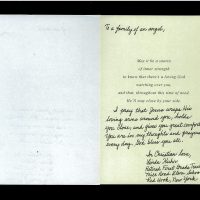 To a family of an angel,
May it be a source
of inner strength
to know that there's a loving God
watching over you,
and that throughout this time of need
He'll stay close by your side.
I pray that Jesus wraps His
loving arms around you, holds
you close, and gives you great comfort.
You are in my thoughts and prayers
every day. God bless you all.
In Christian love,
Retired First Grade Teacher
Mill Road Elem. School
Red Hook, New York